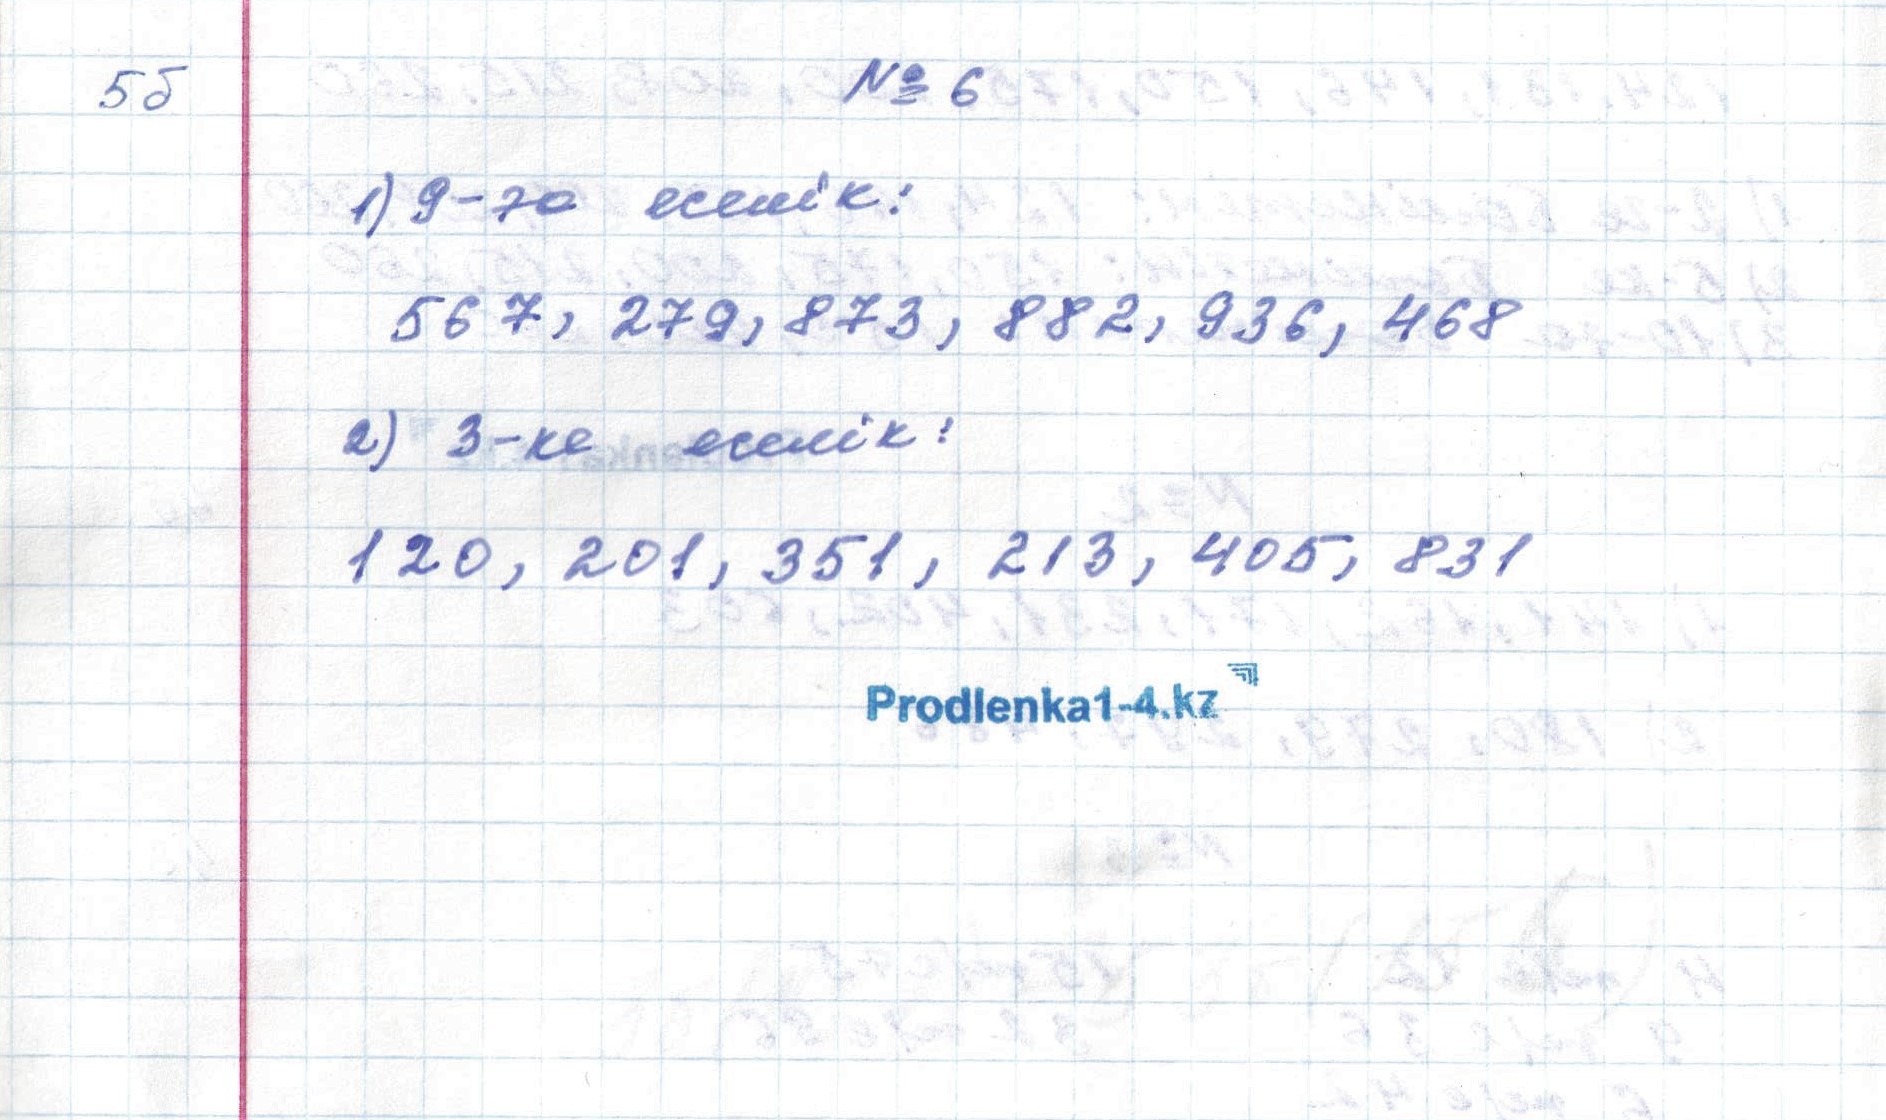 5б
№ 6
1) 9-ға еселік:
567, 279, 873, 882, 936, 468
2) 3-ке еселік:
120, 201, 351, 213, 405, 831
Prodlenka1-4.kz